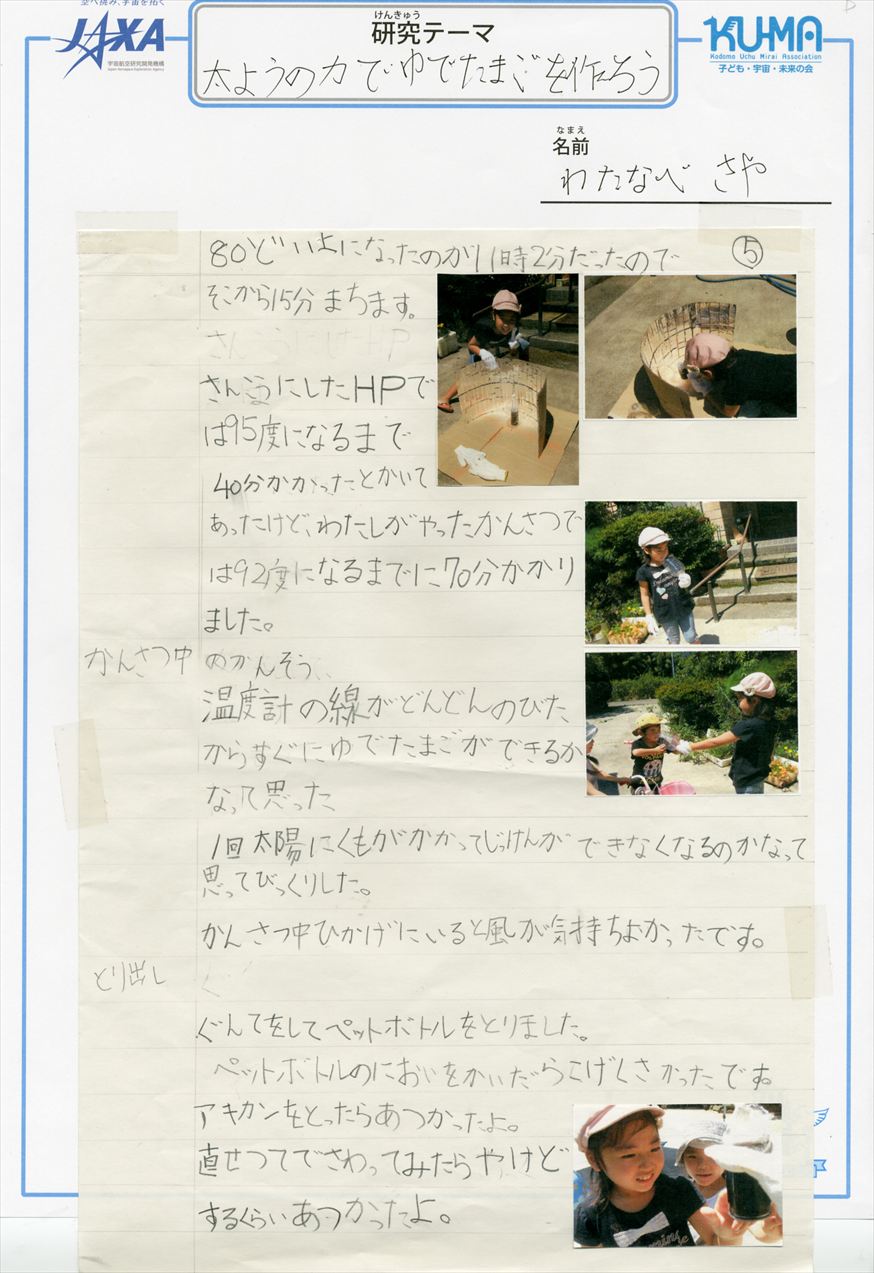 空へ挑み、宇宙を拓く
JAXA
宇宙航空研究開発機構
Japan Aerospace Exploration Agency
けんきゅう
研究テーマ
太ようの力でゆでたまごを作ろう
KU-MA
Kodomo Uchu Mirai Association
子ども・宇宙・未来の会
なまえ
名前
わたなべ さや
⑤
80どいよになったのが11時2分だったので
そこから15分まちます。
さんこうにしたHP
さんこうにしたHPで
は95度になるまで
40分かかったとかいて
あったけど、わたしがやったかんさつで
は92度になるまでに70分かかり
ました。
かんさつ中のかんそう、
温度計の線がどんどんのびた
からすぐにゆでたまごができるか
なって思った
1回太陽にくもがかかってじっけんができなくなるのかなって
思ってびっくりした。
かんさつ中ひかげにいると風が気持ちよかったです。
とり出し
ぐんてをしてペットボトルをとりました。
ペットボトルのにおいをかいだらこげくさかったです。
アキカンをとったらあつかったよ。
直せつてでさわってみたらやけど
するくらいあつかったよ。